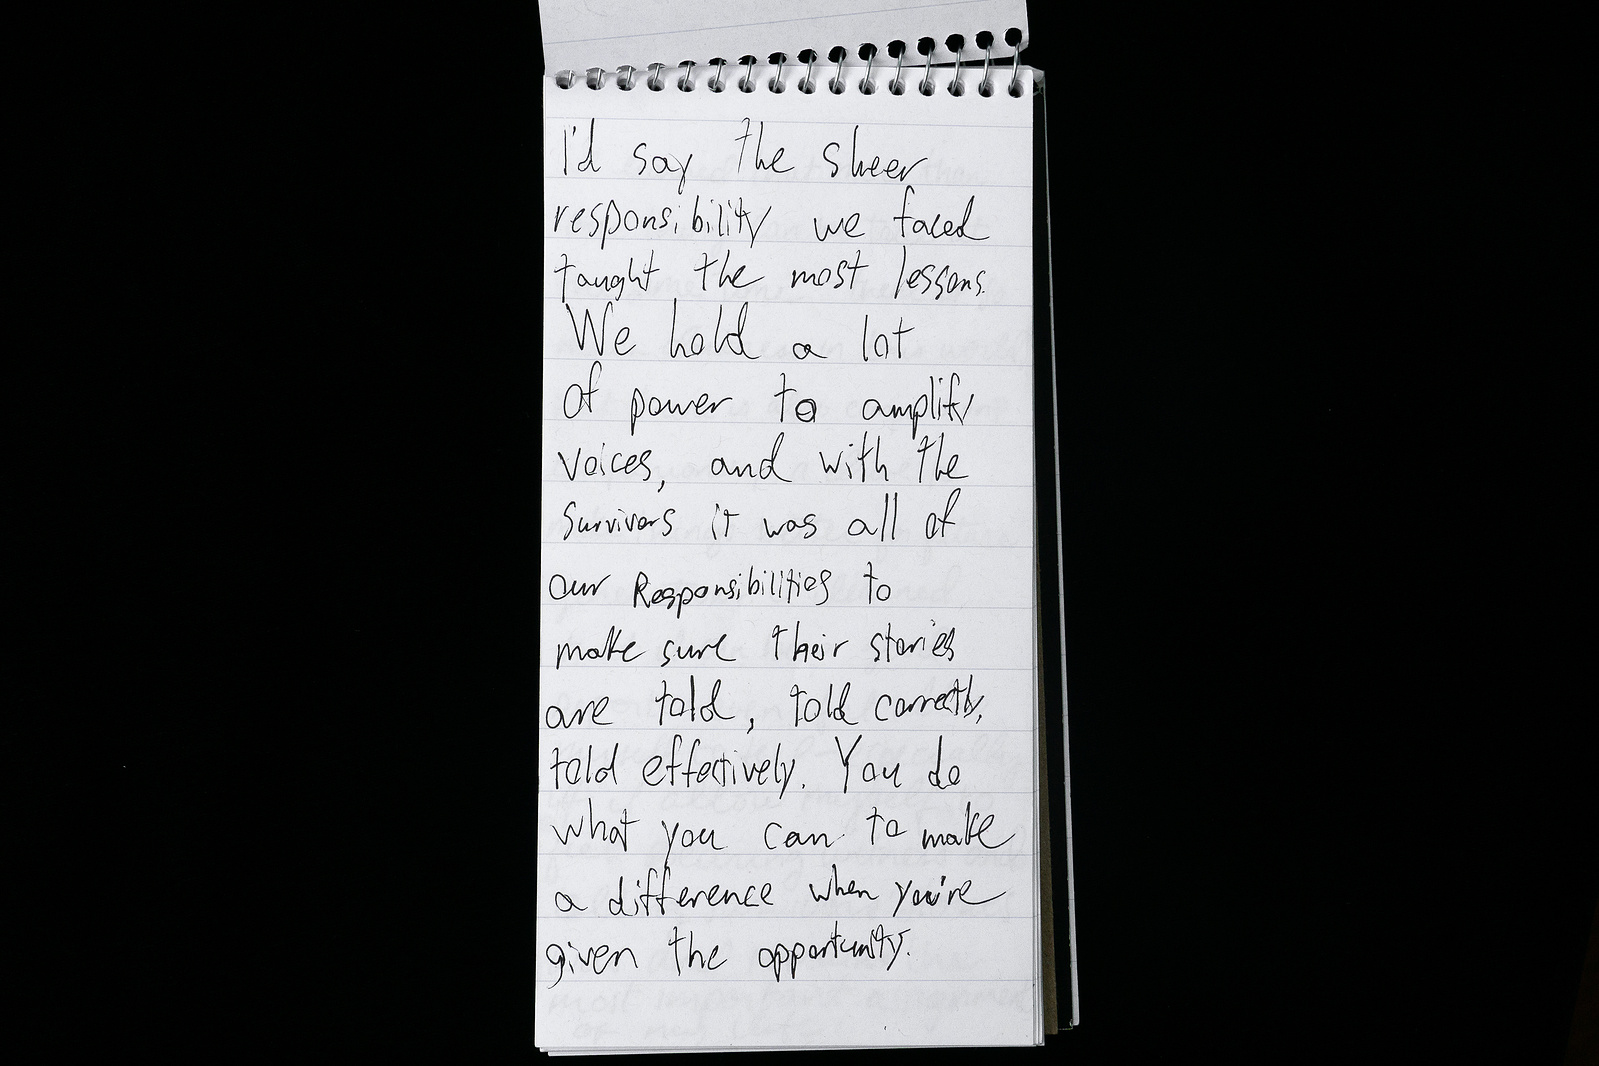 I'd say the sheer
responsibility we faced
taught the most lessons.
We hold a lot
of power to amplify
voices, and with the
survivors it was all of
our Responsibilities to
make sure their stories
are told, told correctly,
told effectively. You do
what you can to make
a difference when you're
given the opportunity.
most important assignment
of my life